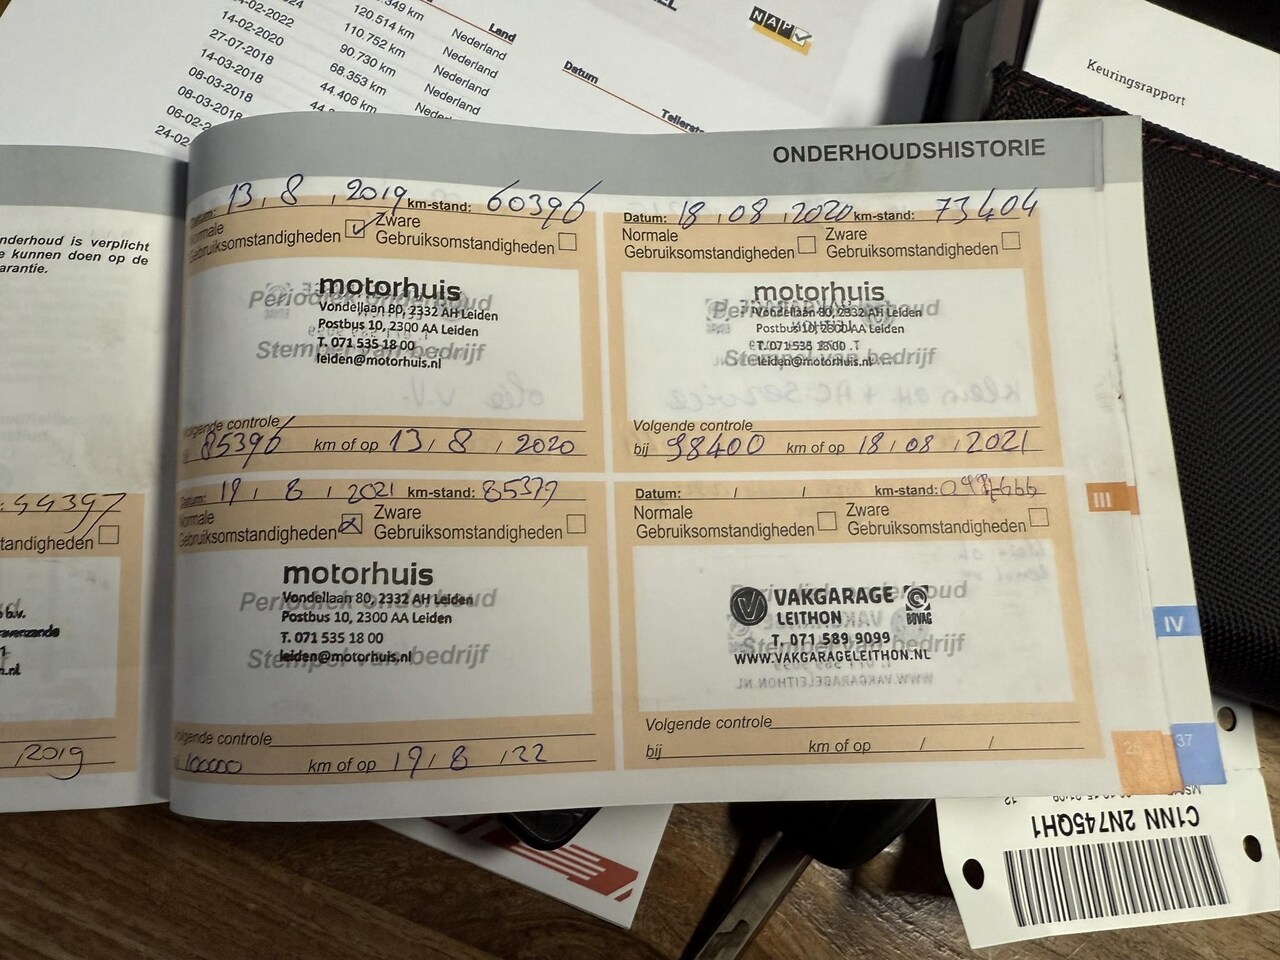 Land
Datum
Tellerst
NAP
Keuringsrapport
.349 km
120.514 km
110.752 km
90.730 km
68.353 km
44.406 km
Nederland
Nederland
Nederland
Nederland
Nederland
-02-2022
14-02-2020
27-07-2018
14-03-2018
08-03-2018
08-03-2018
06-02-2
24-02
ONDERHOUDSHISTORIE
nderhoud is verplicht
e kunnen doen op de
arantie.
: 44397
tandigheden
b.v.
n.nl
, 2019
Datum: 13, 8, 2019 km-stand: 60396
Normale Zware
Gebruiksomstandigheden Gebruiksomstandigheden
motorhuis
Periodiek onderhoud
Vondellaan 80, 2332 AH Leiden
Postbus 10, 2300 AA Leiden
T. 071 535 18 00
Stempel van bedrijf
leiden@motorhuis.nl
Volgende controle
85396 km of op 13, 8, 2020
Datum: 18, 08, 2020 km-stand: 73404
Normale Zware
Gebruiksomstandigheden Gebruiksomstandigheden
motorhuis
Periodiek onderhoud
Vondellaan 80, 2332 AH Leiden
Postbus 10, 2300 AA Leiden
T. 071 535 18 00
Stempel van bedrijf
leiden@motorhuis.nl
Volgende controle
bij 98400 km of op 18, 08, 2021
Datum: 19, 8, 2021 km-stand: 85379
Normale Zware
Gebruiksomstandigheden Gebruiksomstandigheden
motorhuis
Periodiek onderhoud
Vondellaan 80, 2332 AH Leiden
Postbus 10, 2300 AA Leiden
T. 071 535 18 00
Stempel van bedrijf
leiden@motorhuis.nl
Volgende controle
100000 km of op 19, 8, 22
Datum: / / km-stand:
Normale Zware
Gebruiksomstandigheden Gebruiksomstandigheden
Periodiek onderhoud
VAKGARAGE
LEITHON BOVAG
T. 071 589 9099
Stempel van bedrijf
WWW.VAKGARAGELEITHON.NL
Volgende controle
bij km of op / /
III
IV
25
37
C1NN 2N745QH1